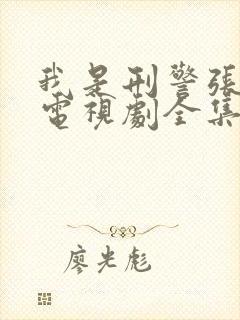 我是刑警張
電視劇全集
廖光彪